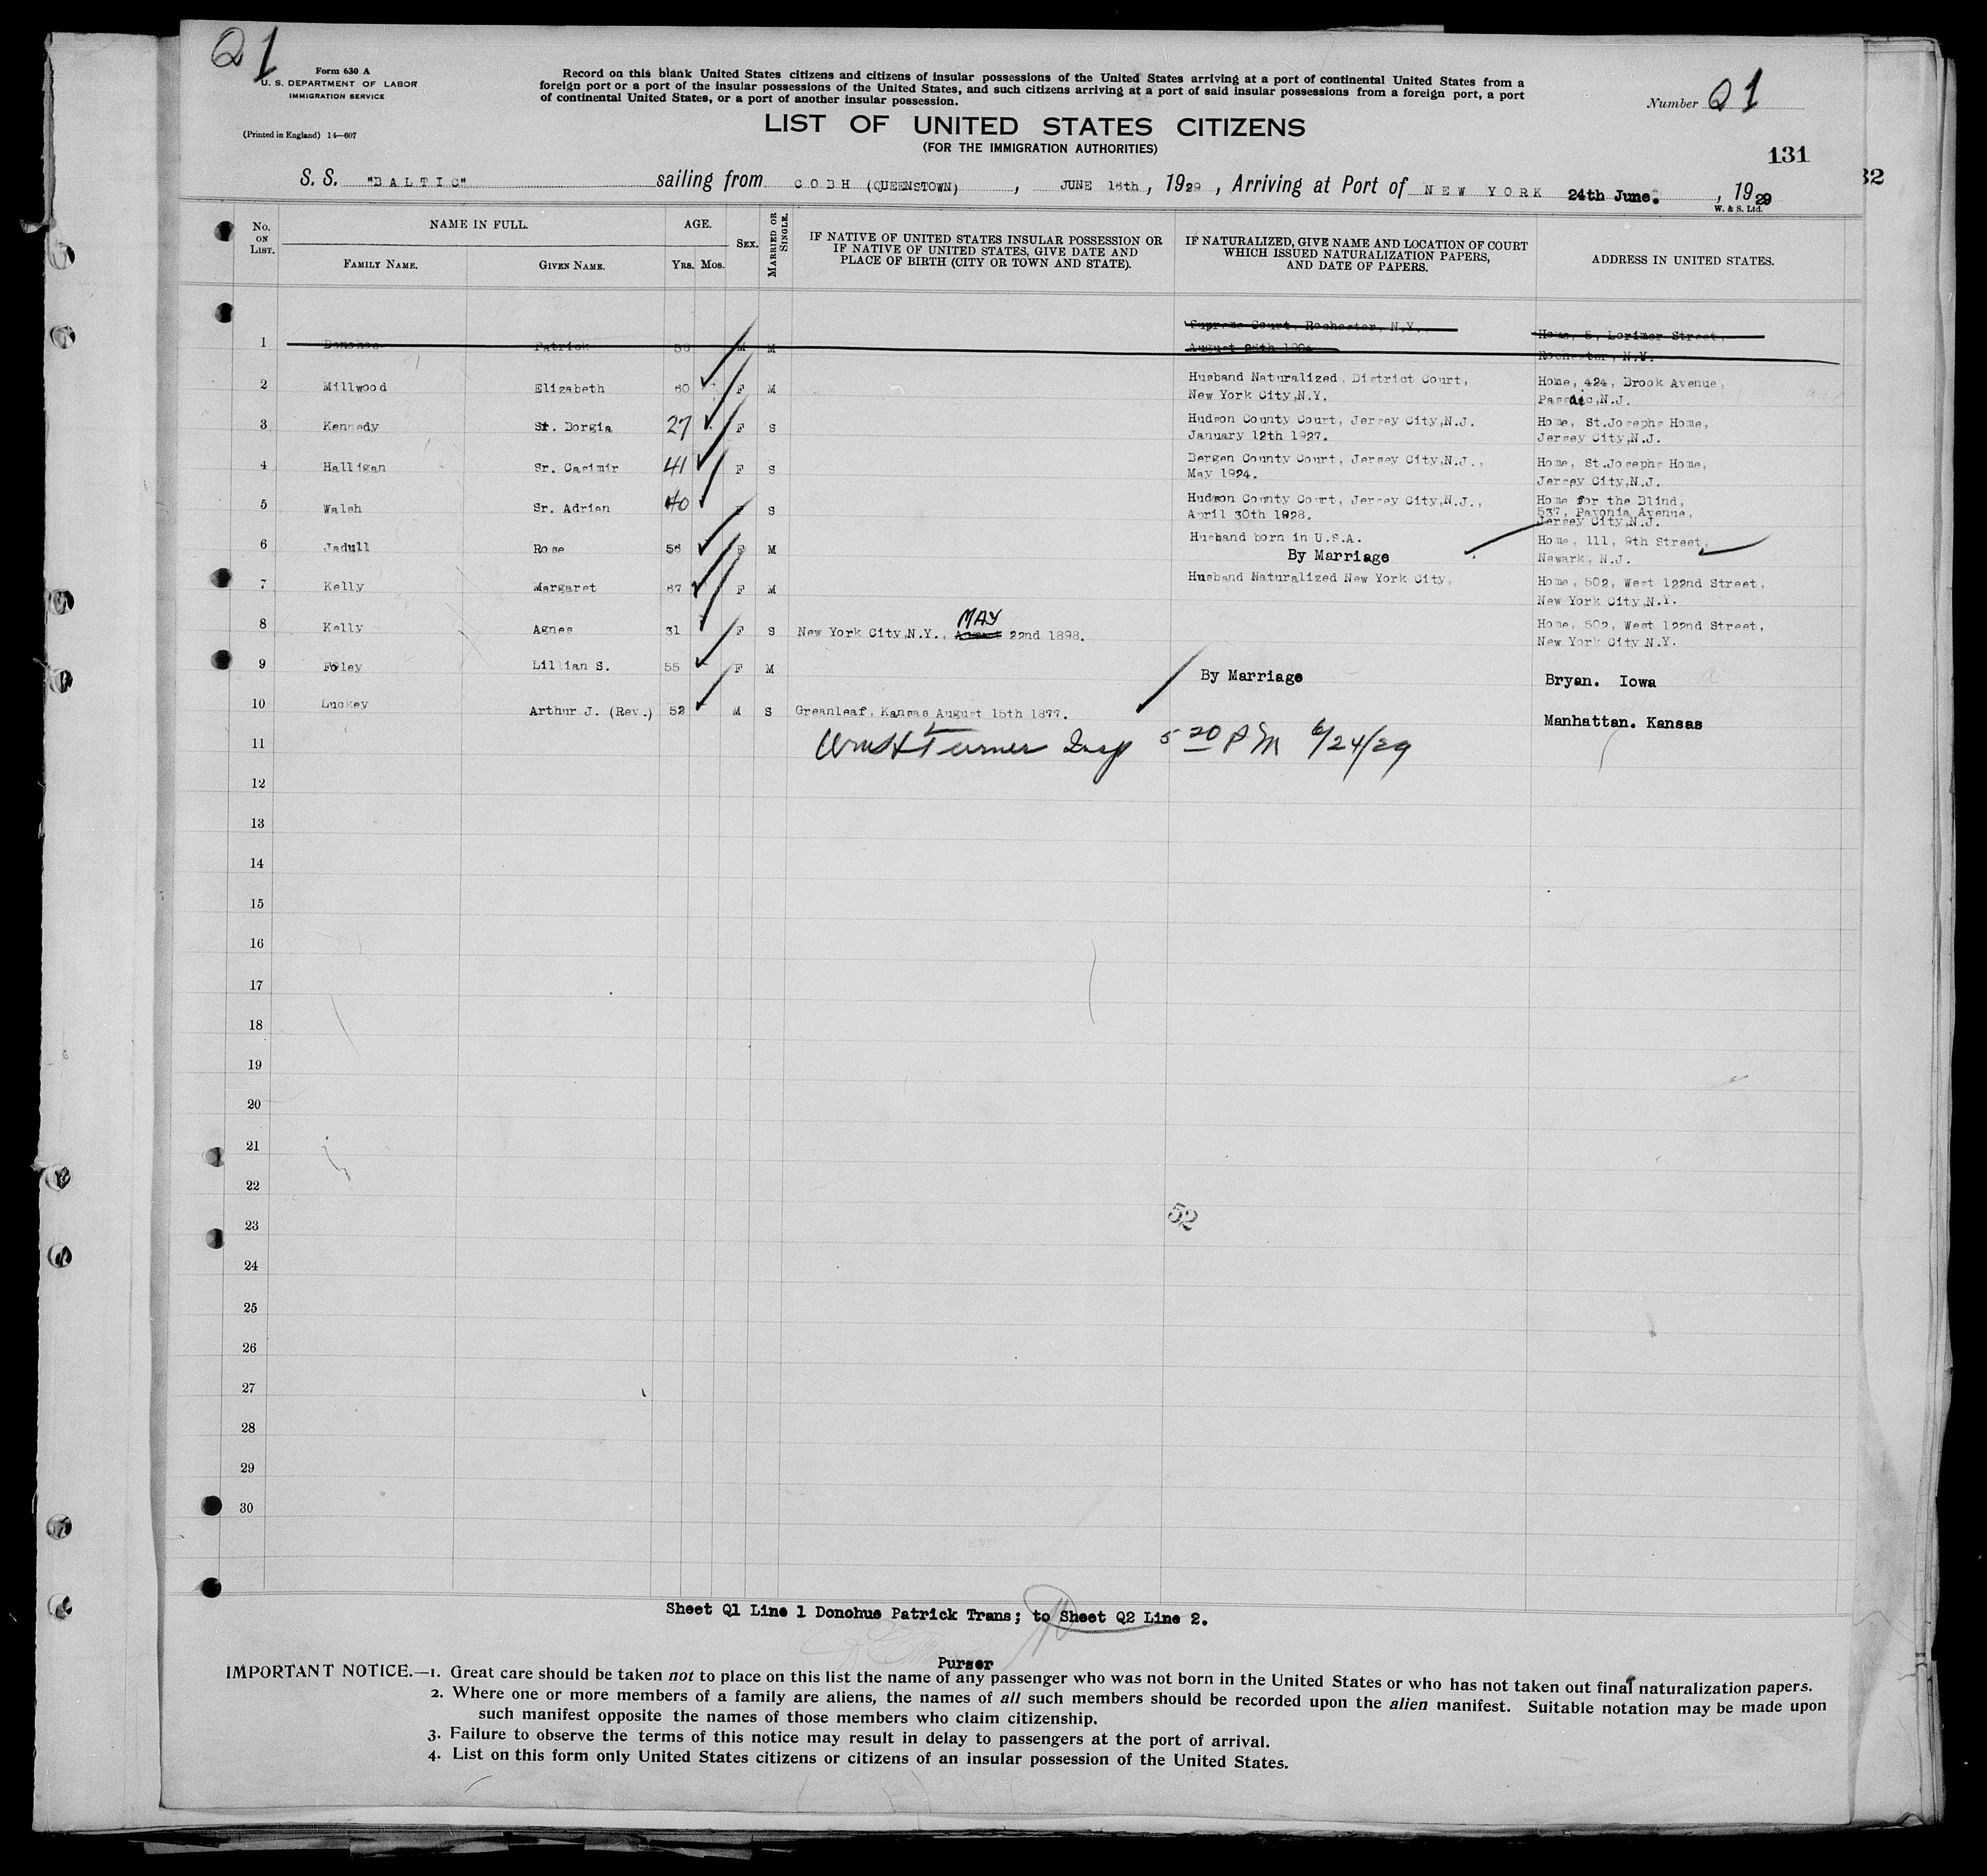 Q1
Form 630 A
U. S. DEPARTMENT OF LABOR
IMMIGRATION SERVICE
(Printed in England) 14—607
Record on this blank United States citizens and citizens of insular possessions of the United States arriving at a port of continental United States from a
foreign port or a port of the insular possessions of the United States, and such citizens arriving at a port of said insular possessions from a foreign port, a port
of continental United States, or a port of another insular possession.
Number Q1
LIST OF UNITED STATES CITIZENS
(FOR THE IMMIGRATION AUTHORITIES)
131
32
S. S. "BALTIC" sailing from COBH (QUEENSTOWN), JUNE 16th, 1929, Arriving at Port of NEW YORK 24th June., 1929
W. & S. Ltd.
No. ON LIST. NAME IN FULL. FAMILY NAME. GIVEN NAME. AGE. YRS. MOS. SEX. MARRIED OR SINGLE. IF NATIVE OF UNITED STATES INSULAR POSSESSION OR IF NATIVE OF UNITED STATES, GIVE DATE AND PLACE OF BIRTH (CITY OR TOWN AND STATE). IF NATURALIZED, GIVE NAME AND LOCATION OF COURT WHICH ISSUED NATURALIZATION PAPERS, AND DATE OF PAPERS. ADDRESS IN UNITED STATES.
Supreme Court, Rochester, N.Y. Home, 5, Lorimer Street,
1 Donohue Patrick 56 M M August 26th Rochester, N.Y.
2 Millwood Elizabeth 60 F M Husband Naturalized, District Court, Home, 424, Brook Avenue,
New York City,N.Y. Passaic,N.J.
3 Kennedy Sr. Borgia 27 F S Hudson County Court, Jersey City,N.J. Home, St.Josephs Home,
January 12th 1927. Jersey City,N.J.
4 Halligan Sr. Casimir 41 F S Bergen County Court, Jersey City,N.J., Home, St.Josephs Home,
May 1924. Jersey City,N.J.
5 Walsh Sr. Adrian 40 F S Hudson County Court, Jersey City,N.J., Home for the Blind,
April 30th 1928. 537, Pavonia Avenue,
Jersey City,N.J.
6 Jadull Rose 56 F M Husband born in U.S.A. Home, 111, 9th Street,
By Marriage Newark, N.J.
7 Kelly Margaret 67 F M Husband Naturalized New York City, Home, 502, West 122nd Street,
New York City,N.Y.
MAY
8 Kelly Agnes 31 F S New York City,N.Y., August 22nd 1898. Home, 502, West 122nd Street,
New York City N.Y.
9 Foley Lillian S. 55 F M By Marriage Bryan. Iowa
10 Luckey Arthur J. (Rev.) 52 M S Greenleaf, Kansas August 15th 1877. Manhattan. Kansas
11 Wm H Turner Insp 5 20 PM 6/24/29
12
13
14
15
16
17
18
19
20
21
22
52
23
24
25
26
27
28
29
30
Sheet Q1 Line 1 Donohue Patrick Trans; to Sheet Q2 Line 2.
Purser
IMPORTANT NOTICE.—1. Great care should be taken not to place on this list the name of any passenger who was not born in the United States or who has not taken out final naturalization papers.
2. Where one or more members of a family are aliens, the names of all such members should be recorded upon the alien manifest. Suitable notation may be made upon
such manifest opposite the names of those members who claim citizenship.
3. Failure to observe the terms of this notice may result in delay to passengers at the port of arrival.
4. List on this form only United States citizens or citizens of an insular possession of the United States.